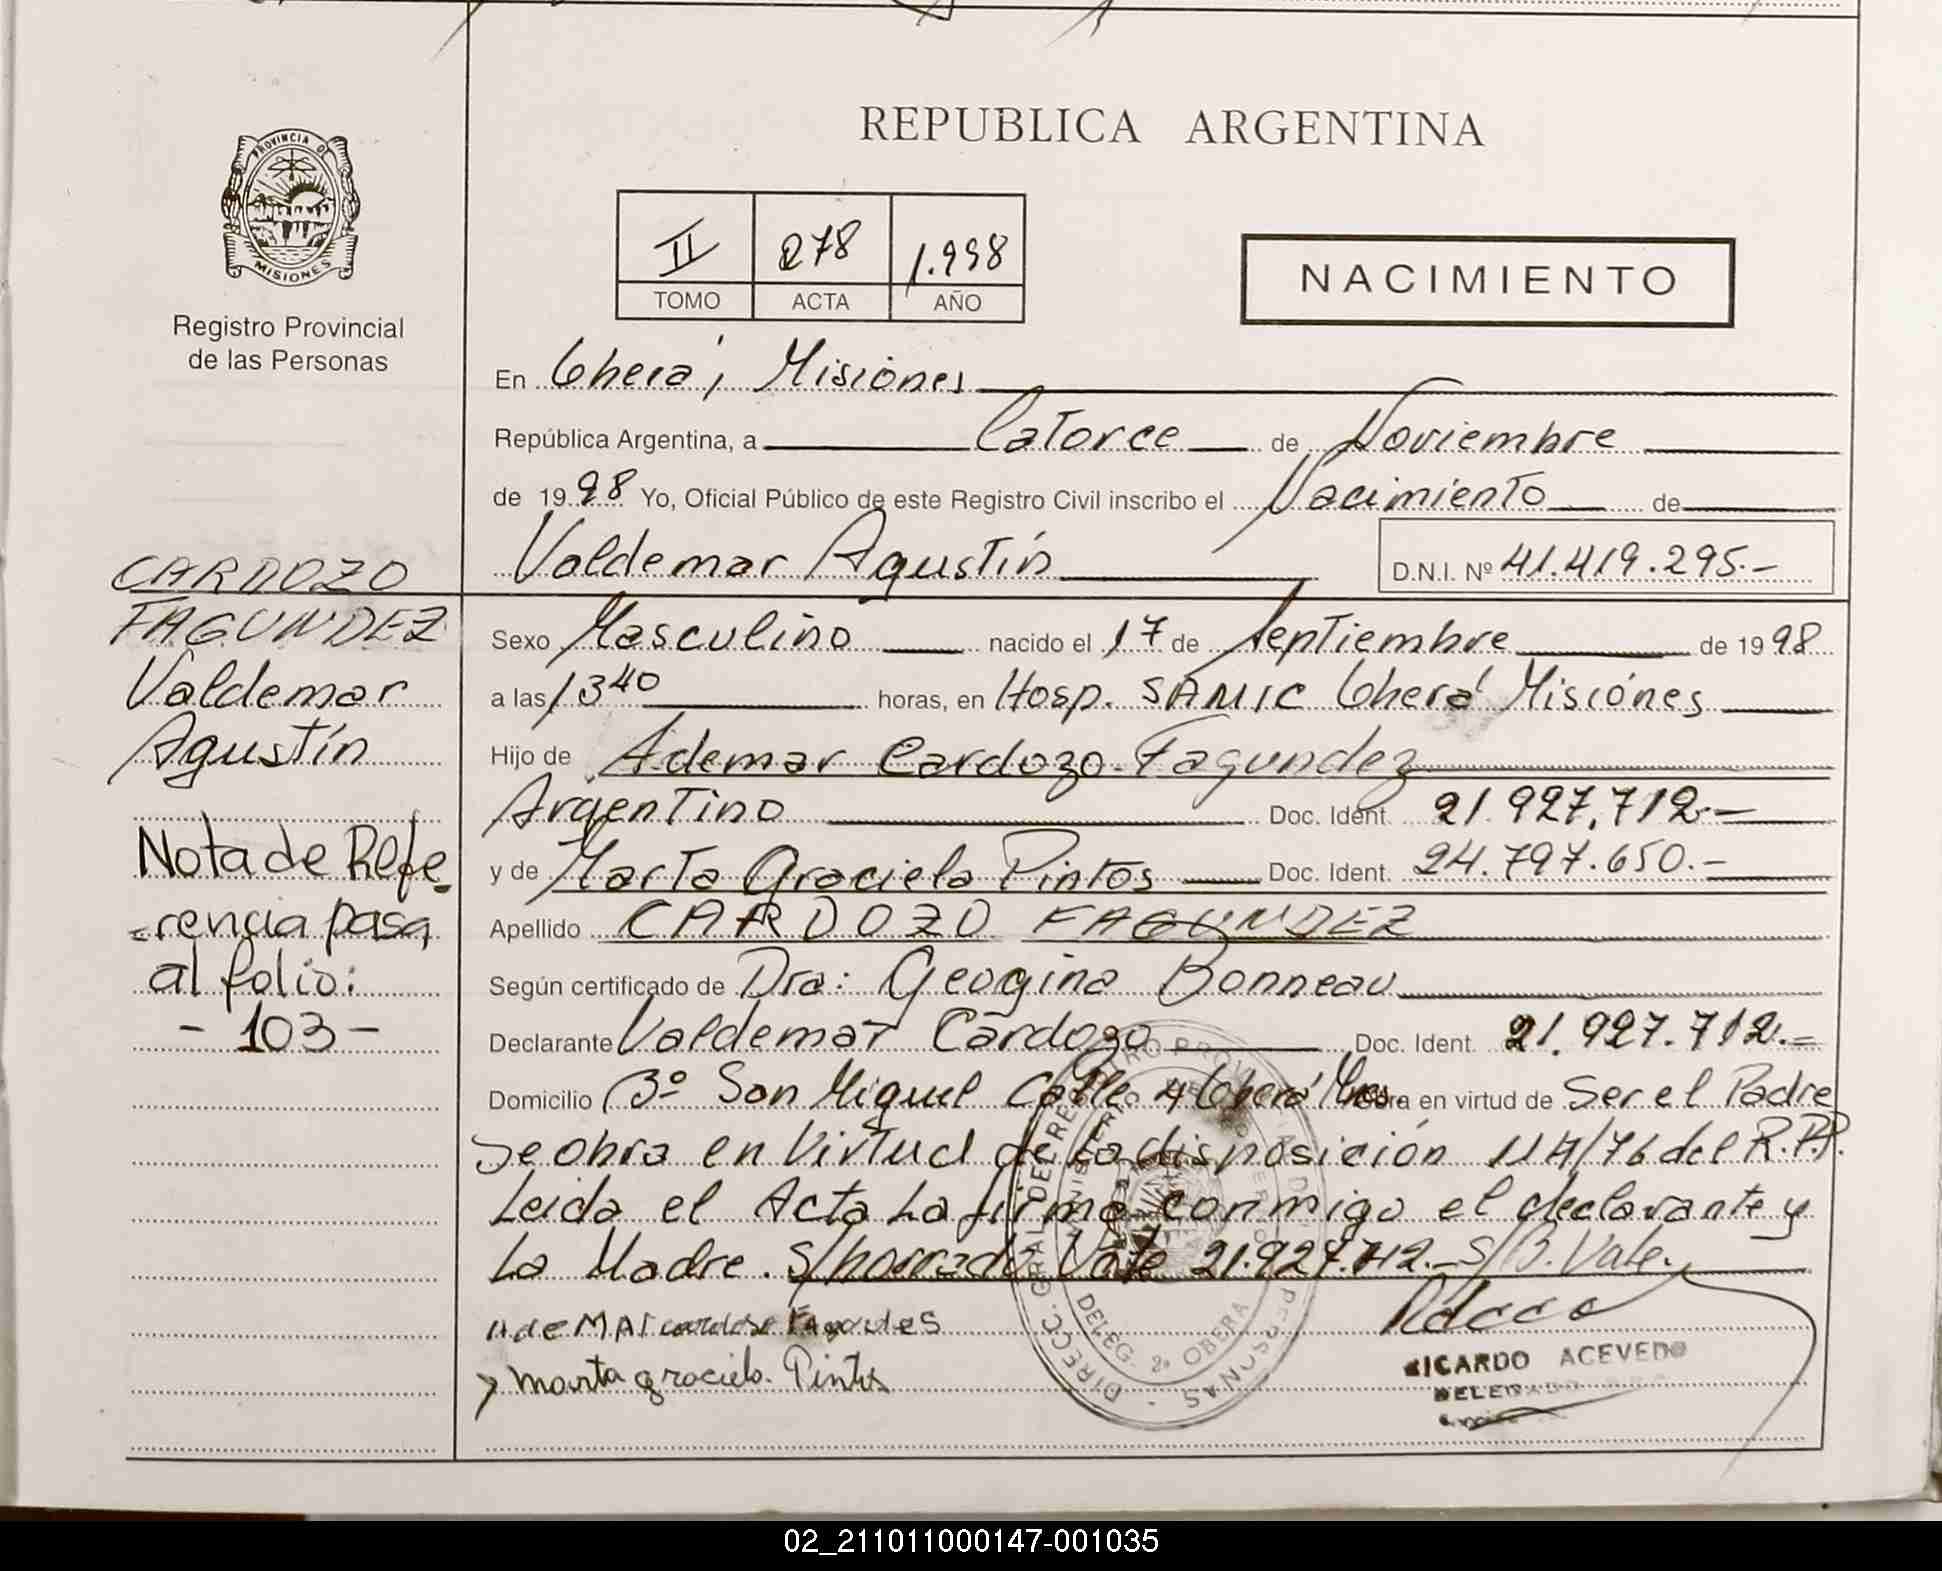 PROVINCIA DE
MISIONES
Registro Provincial
de las Personas
REPUBLICA ARGENTINA
II 278 1.998
TOMO ACTA AÑO
NACIMIENTO
En Oberá, Misiones
República Argentina, a Catorce de Noviembre
de 1998 Yo, Oficial Público de este Registro Civil inscribo el Nacimiento de
Valdemar Agustín D.N.I. Nº 41.419.295.-
CARDOZO
FAGUNDEZ
Valdemar
Agustín
Nota de Refe
rencia pasa
al folio:
- 103 -
Sexo Masculino nacido el 17 de Septiembre de 1998
a las 13 40 horas, en Hosp. SAMIC Oberá Misiones
Hijo de Ademar Cardozo Fagundez
Argentino Doc. Ident. 21.927.712.-
y de Marta Graciela Pintos Doc. Ident. 24.797.650.-
Apellido CARDOZO FAGUNDEZ
Según certificado de Dra: Geogina Bonneau
Declarante Valdemar Cardozo Doc. Ident. 21.927.712.-
Domicilio Bº San Miguel Calle 4 Oberá Mnes. Obra en virtud de Ser el Padre
Se obra en Virtud de La disposición 114/76 del R.P.P.
Leida el Acta La firma conmigo el declarante y
La Madre. S/borrado Vale 21.927.712.- S/B. Vale.
Marta graciela Pintos
RICARDO ACEVEDO
DELEGADO
DIRECC. GRAL DEL REGISTRO PROVINCIAL DE LAS PERSONAS
MINISTERIO DE GOBIERNO
DELEG. 2ª OBERA
02_211011000147-001035